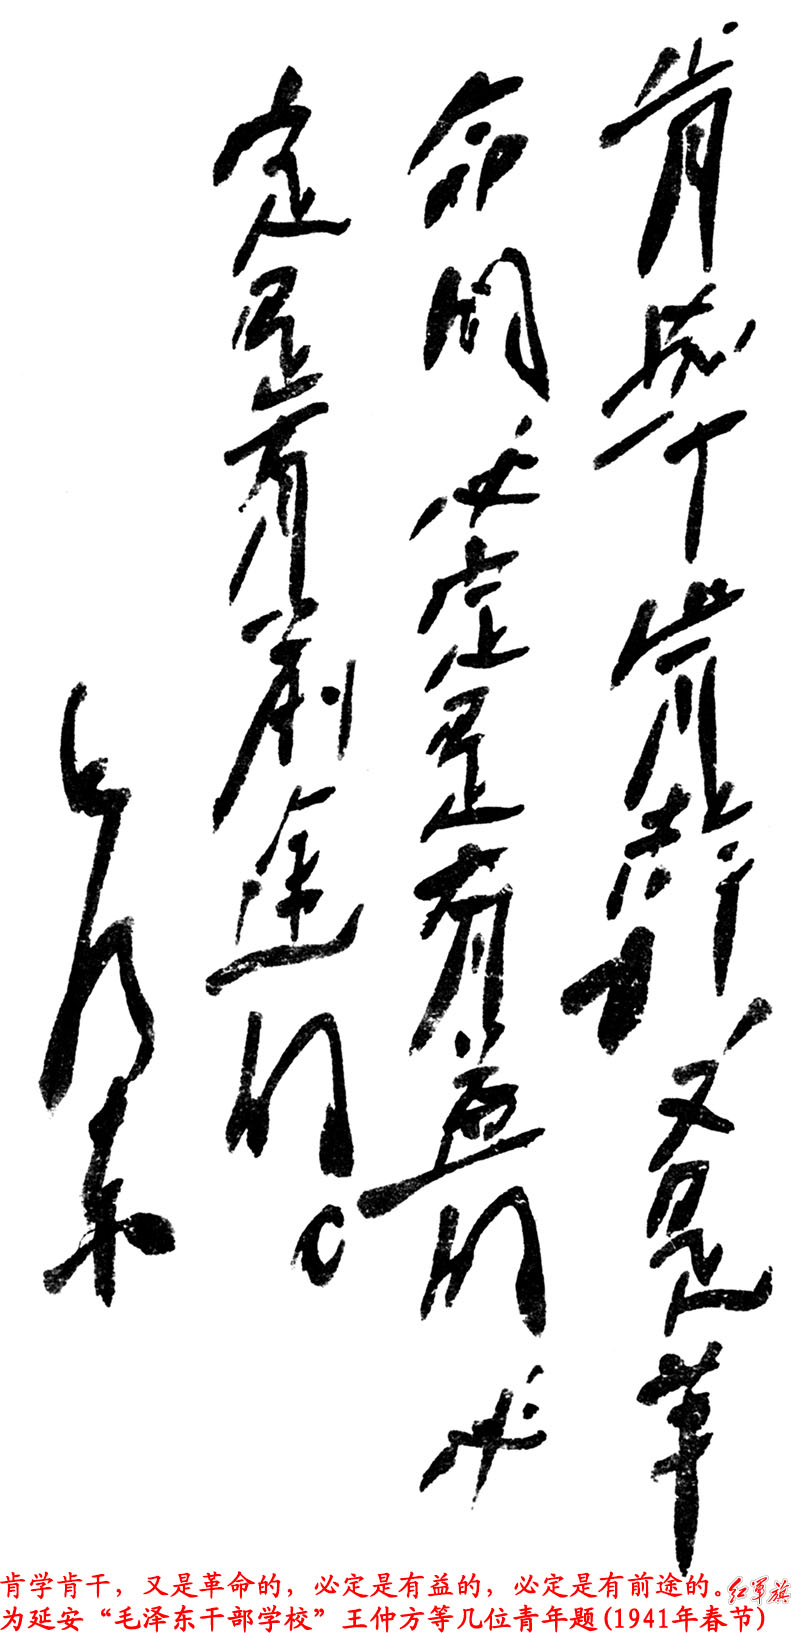 肯学肯幹，又是革
命的必定是有益的必
定是有前途的。
毛泽东
肯学肯干，又是革命的，必定是有益的，必定是有前途的。红军旗
为延安“毛泽东干部学校”王仲方等几位青年题(1941年春节)